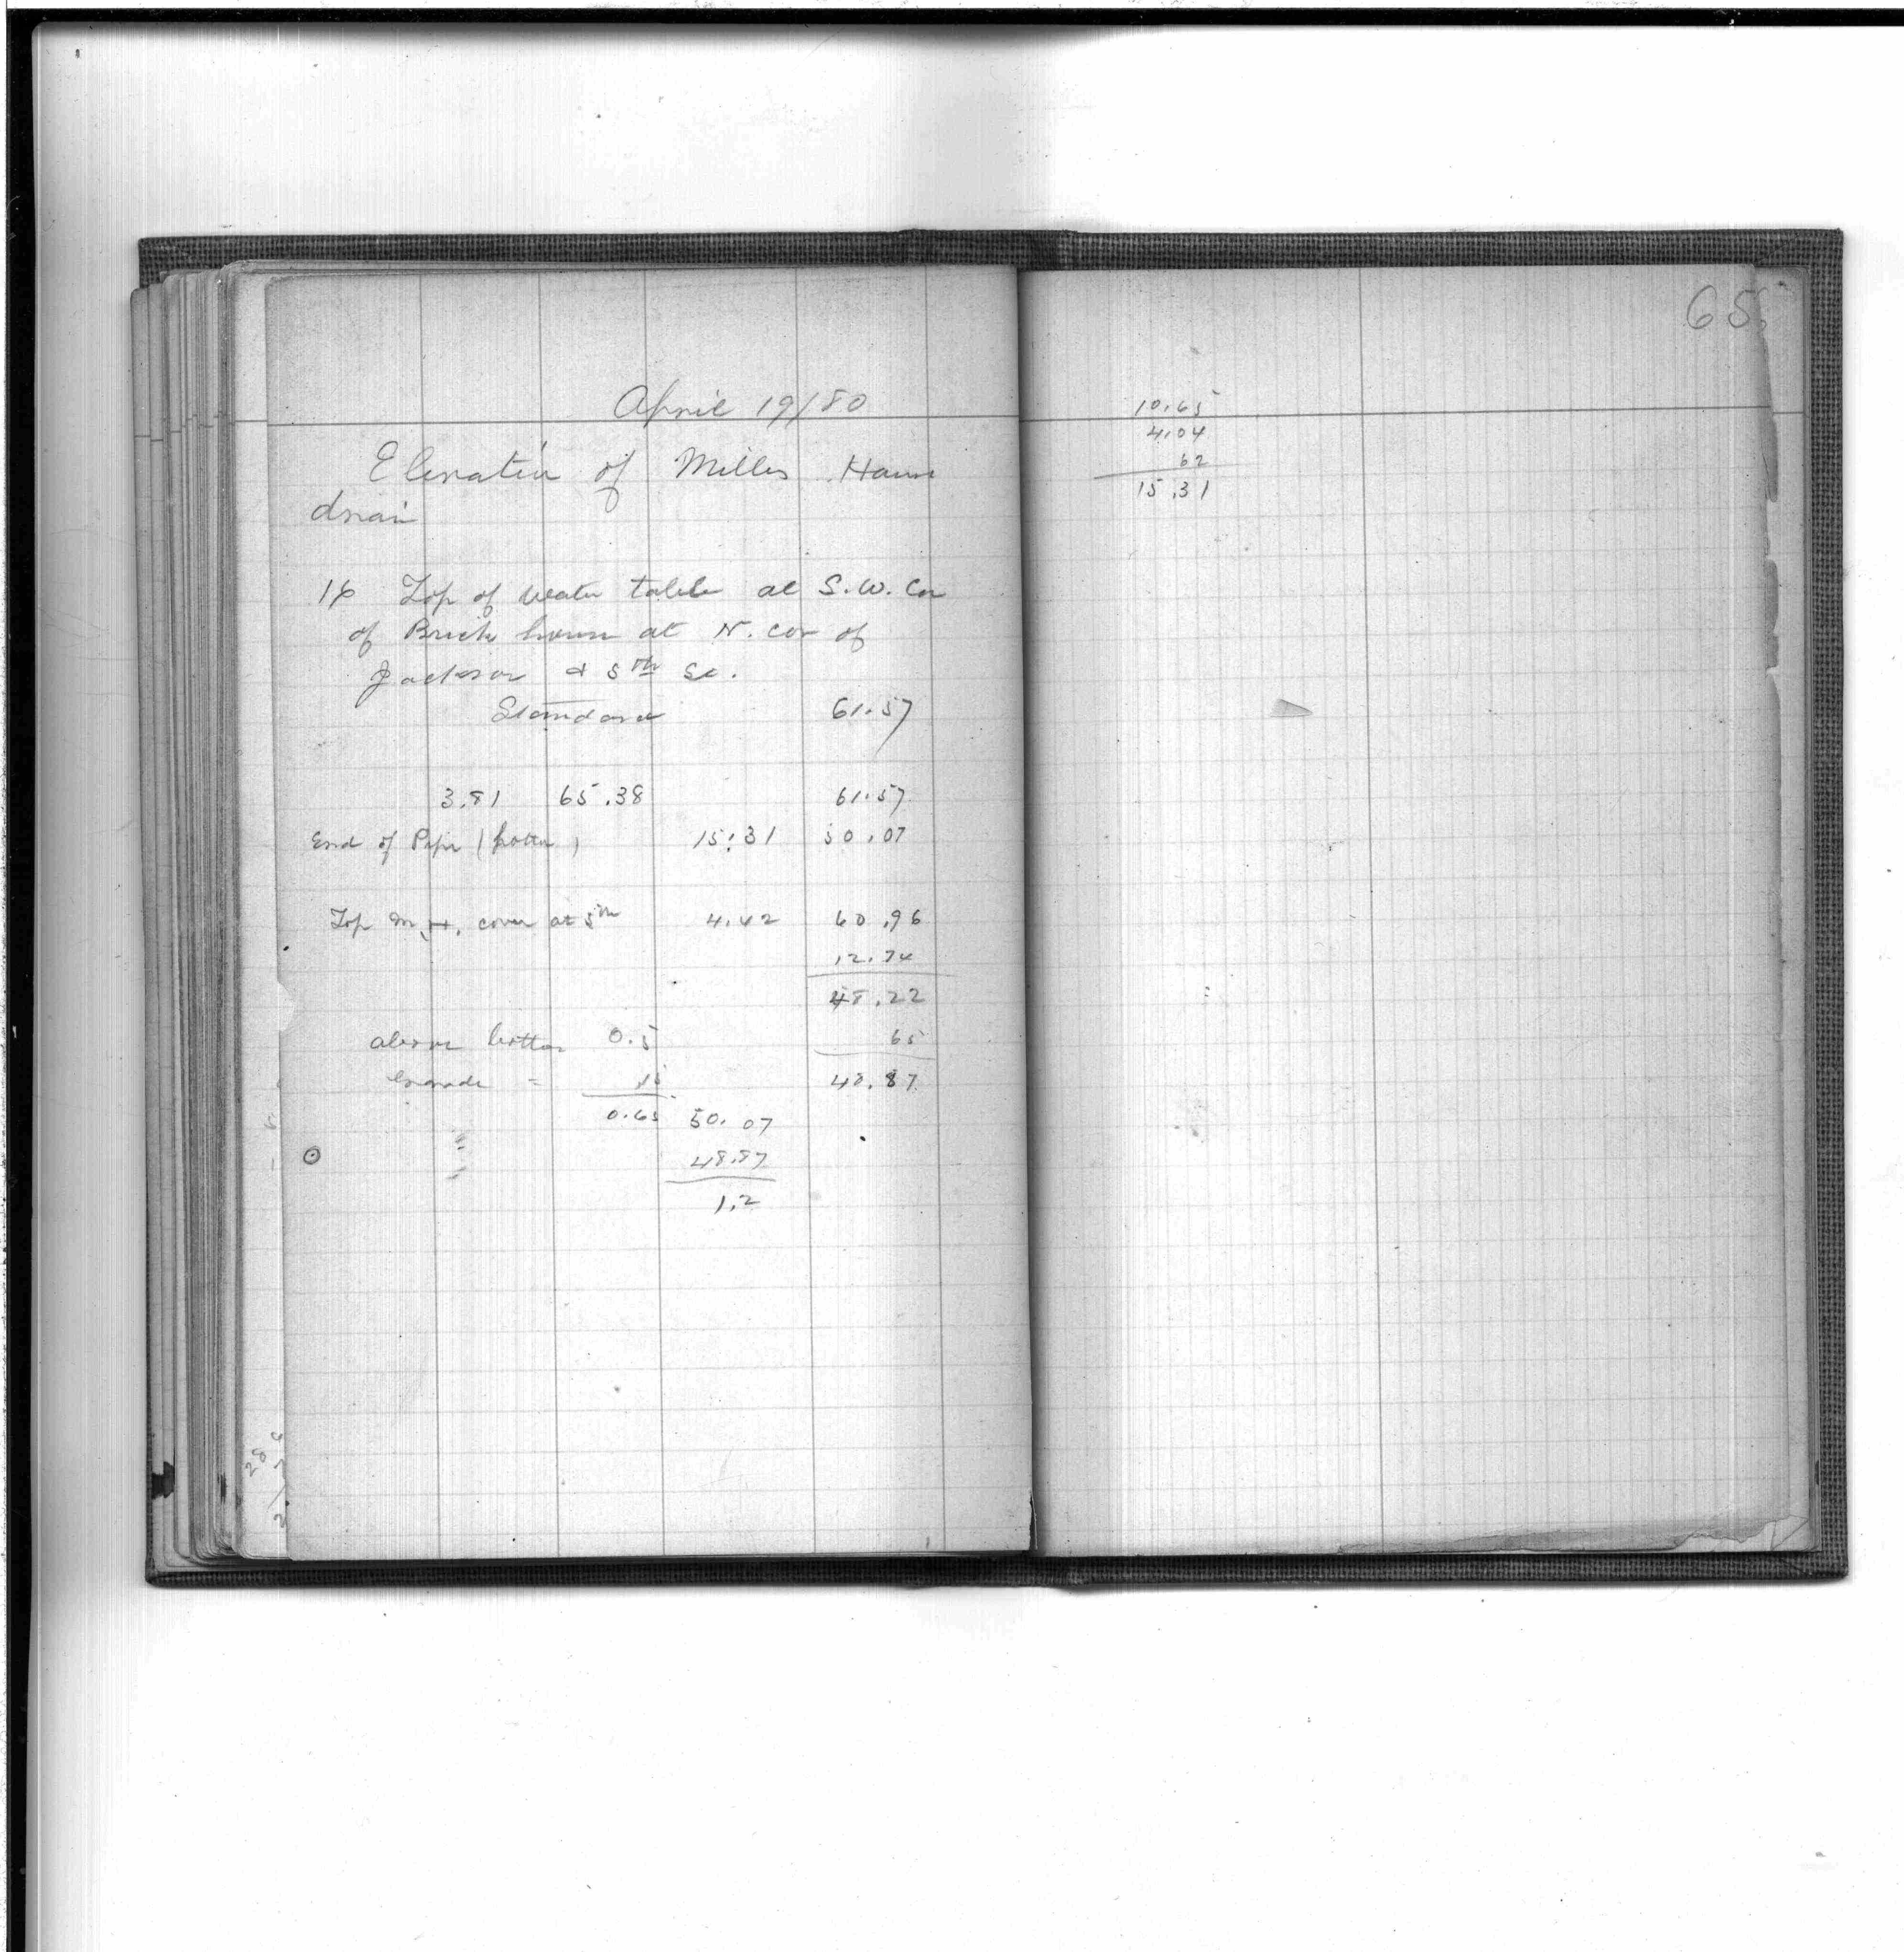 April 19/80
Elevation of Millers House
drain
16 Top of water table at S.W. Cor
of Brick house at N. cor of
Jackson & 5th St.
Standard 61.57
3.81 65.38 61.57
End of Pipe (bottom) 15.31 50.07
Top M.H. cover at 5th 4.42 60.96
12.74
48.22
above bottom 0.5 65
Grade = .15 48.87
0.65 50.07
48.87
1.2
65
10.65
4.04
62
15.31